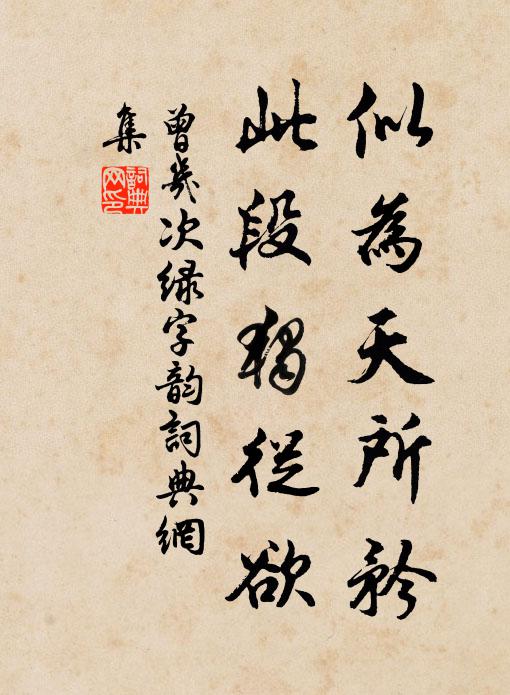 似為天所矜
此段獨從欲
曾幾次綠字韵詞典網
集
詞典網印